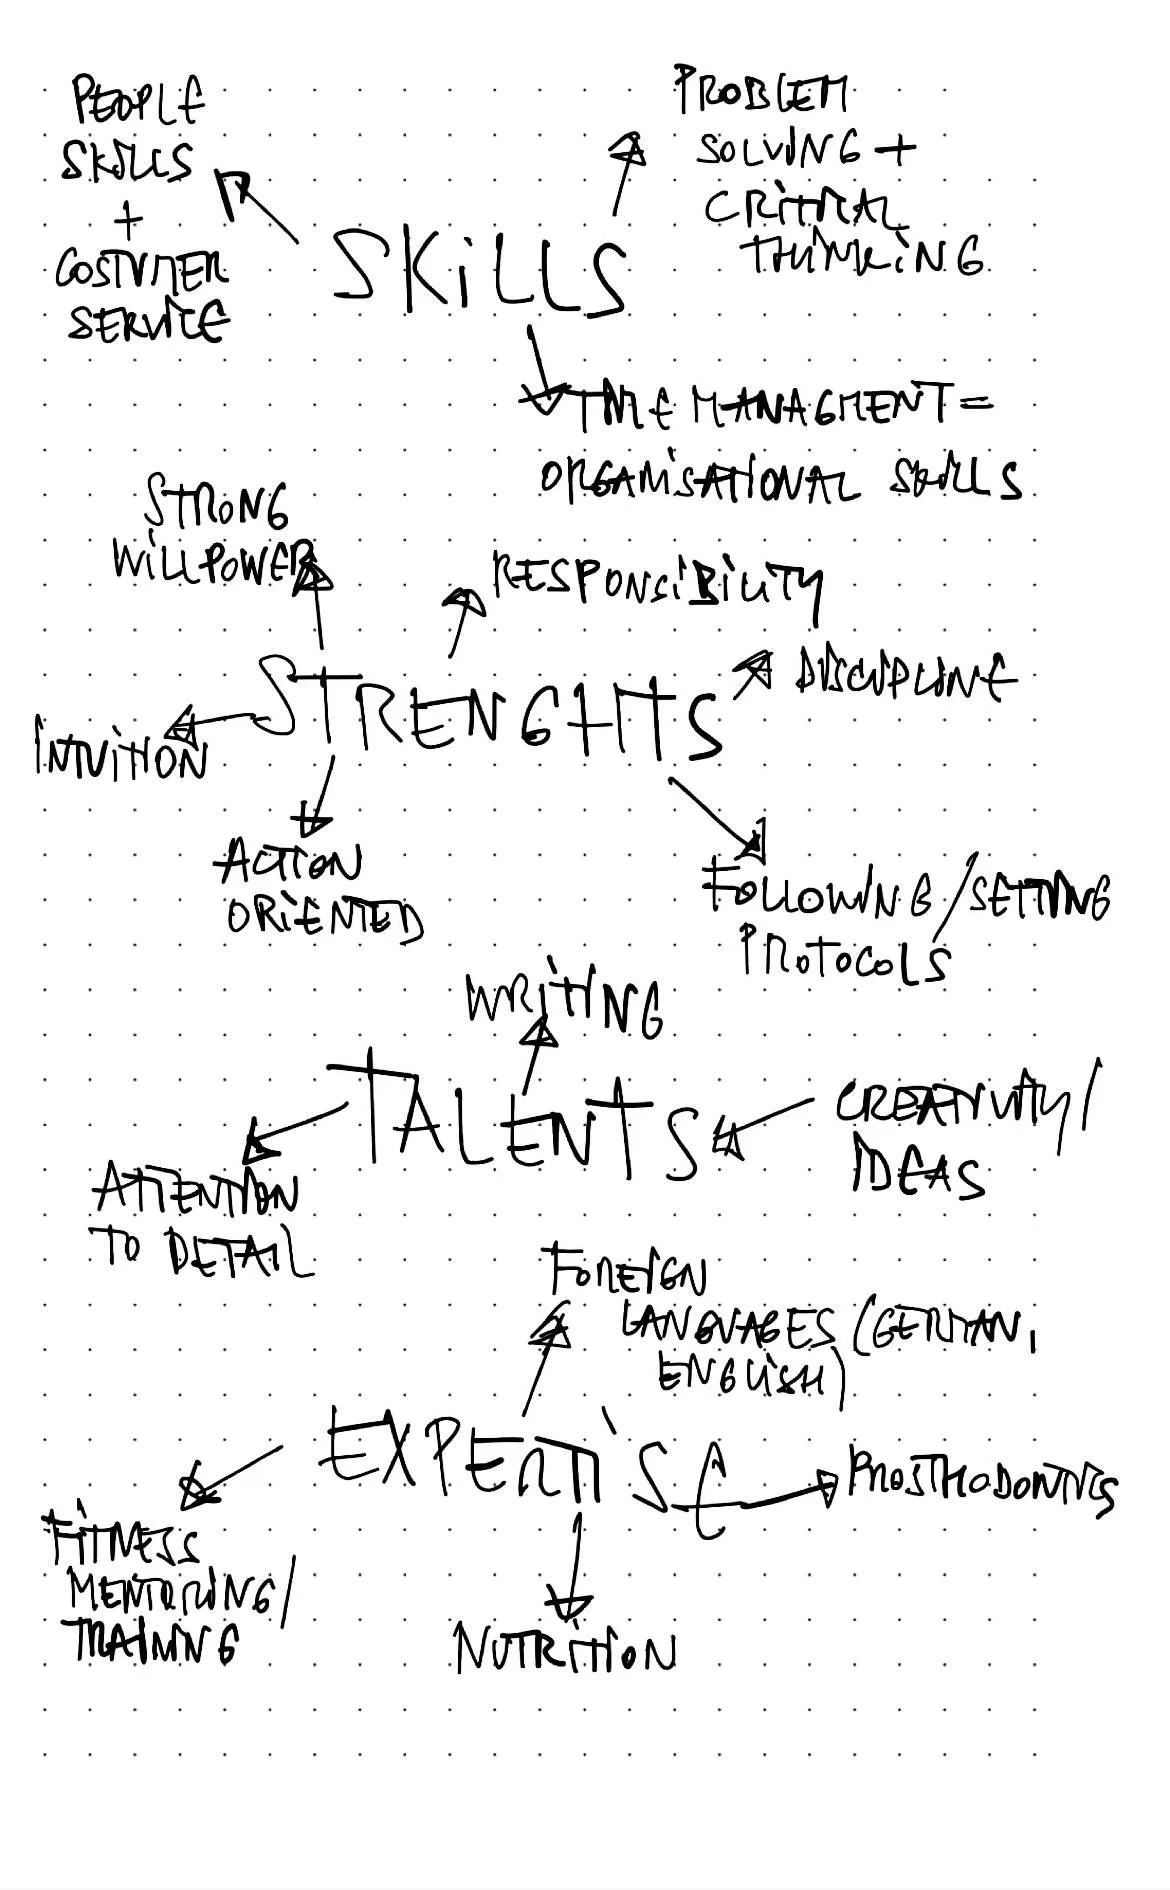 PEOPLE
SKILLS
+
COSTUMER
SERVICE
PROBLEM
SOLVING +
CRITICAL
THINKING
SKiLLS
TIME MANAGMENT =
ORGANISATIONAL SKILLS
STRONG
WILLPOWER
RESPONSIBILITY
DISCIPLINE
STRENGHTS
INTUITION
ACTION
ORIENTED
FOLLOWING/SETTING
PROTOCOLS
WRITING
TALENTS
CREATIVITY/
IDEAS
ATTENTION
TO DETAIL
FOREIGN
LANGUAGES (GERMAN,
ENGLISH)
EXPERTISE
PROSTHODONTICS
FITNESS
MENTORING/
TRAINING
NUTRITION